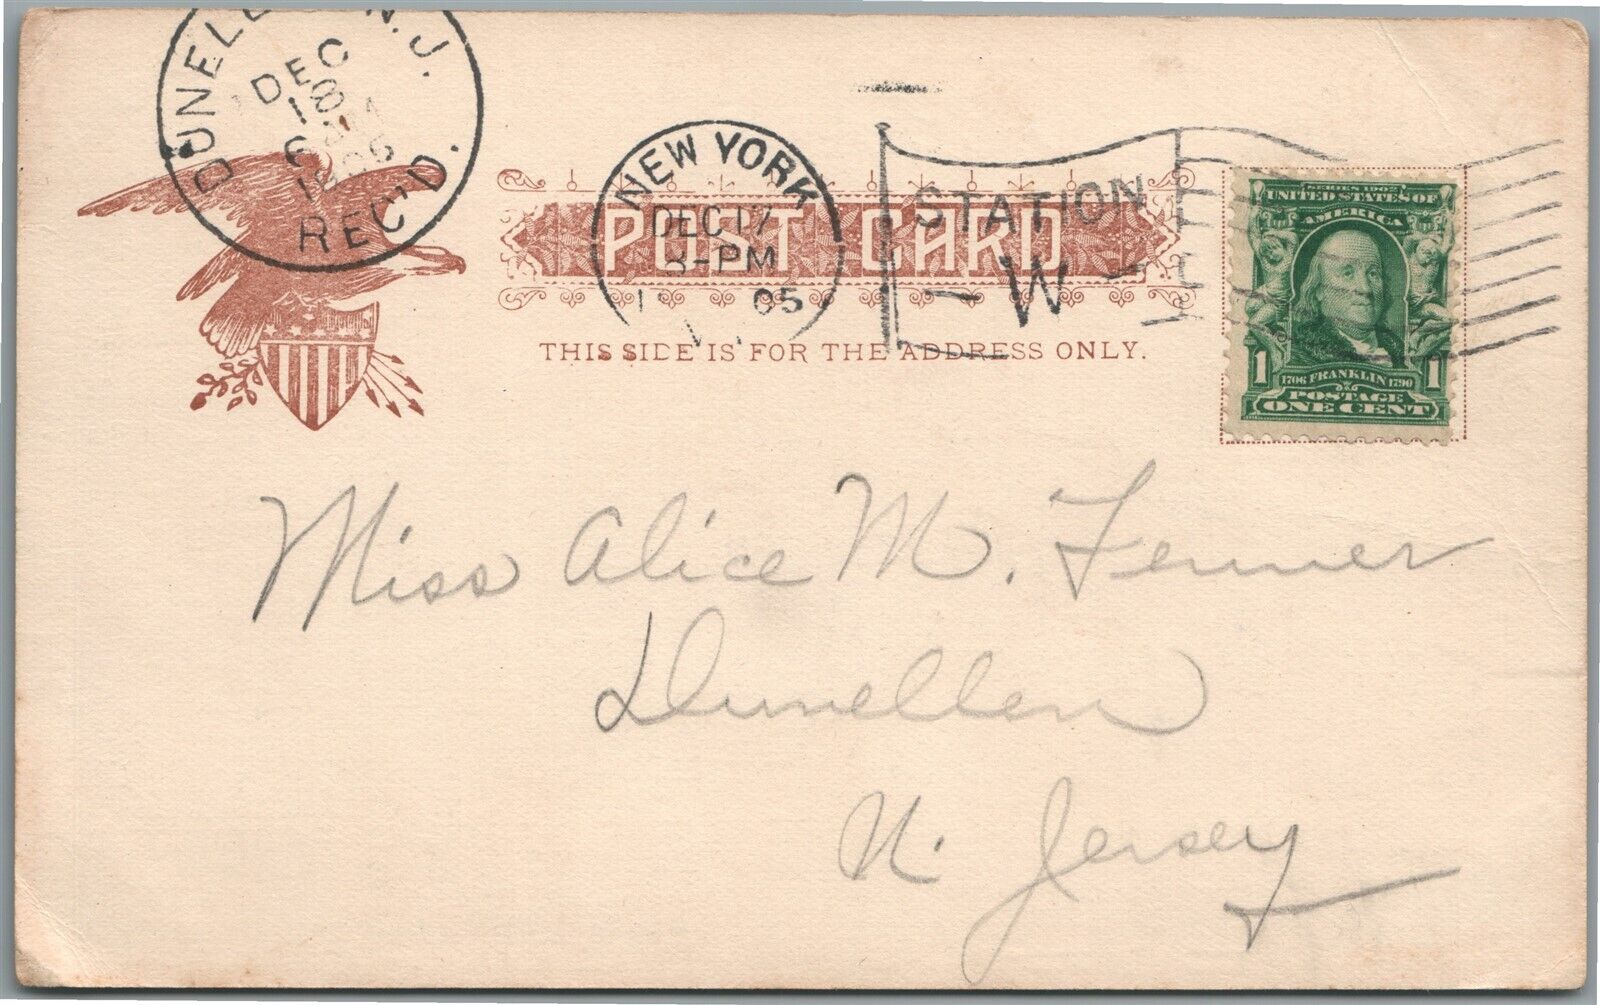 DUNELLEN N.J.
DEC
18
6 AM
1905
REC'D.
NEW YORK
DEC 17
8-PM
05
STATION
W
POST CARD
THIS SIDE IS FOR THE ADDRESS ONLY.
SERIES 1902
UNITED STATES OF
AMERICA
1706 FRANKLIN 1790
1 POSTAGE 1
ONE CENT
Miss Alice M. Fenner
Dunellen
N. Jersey